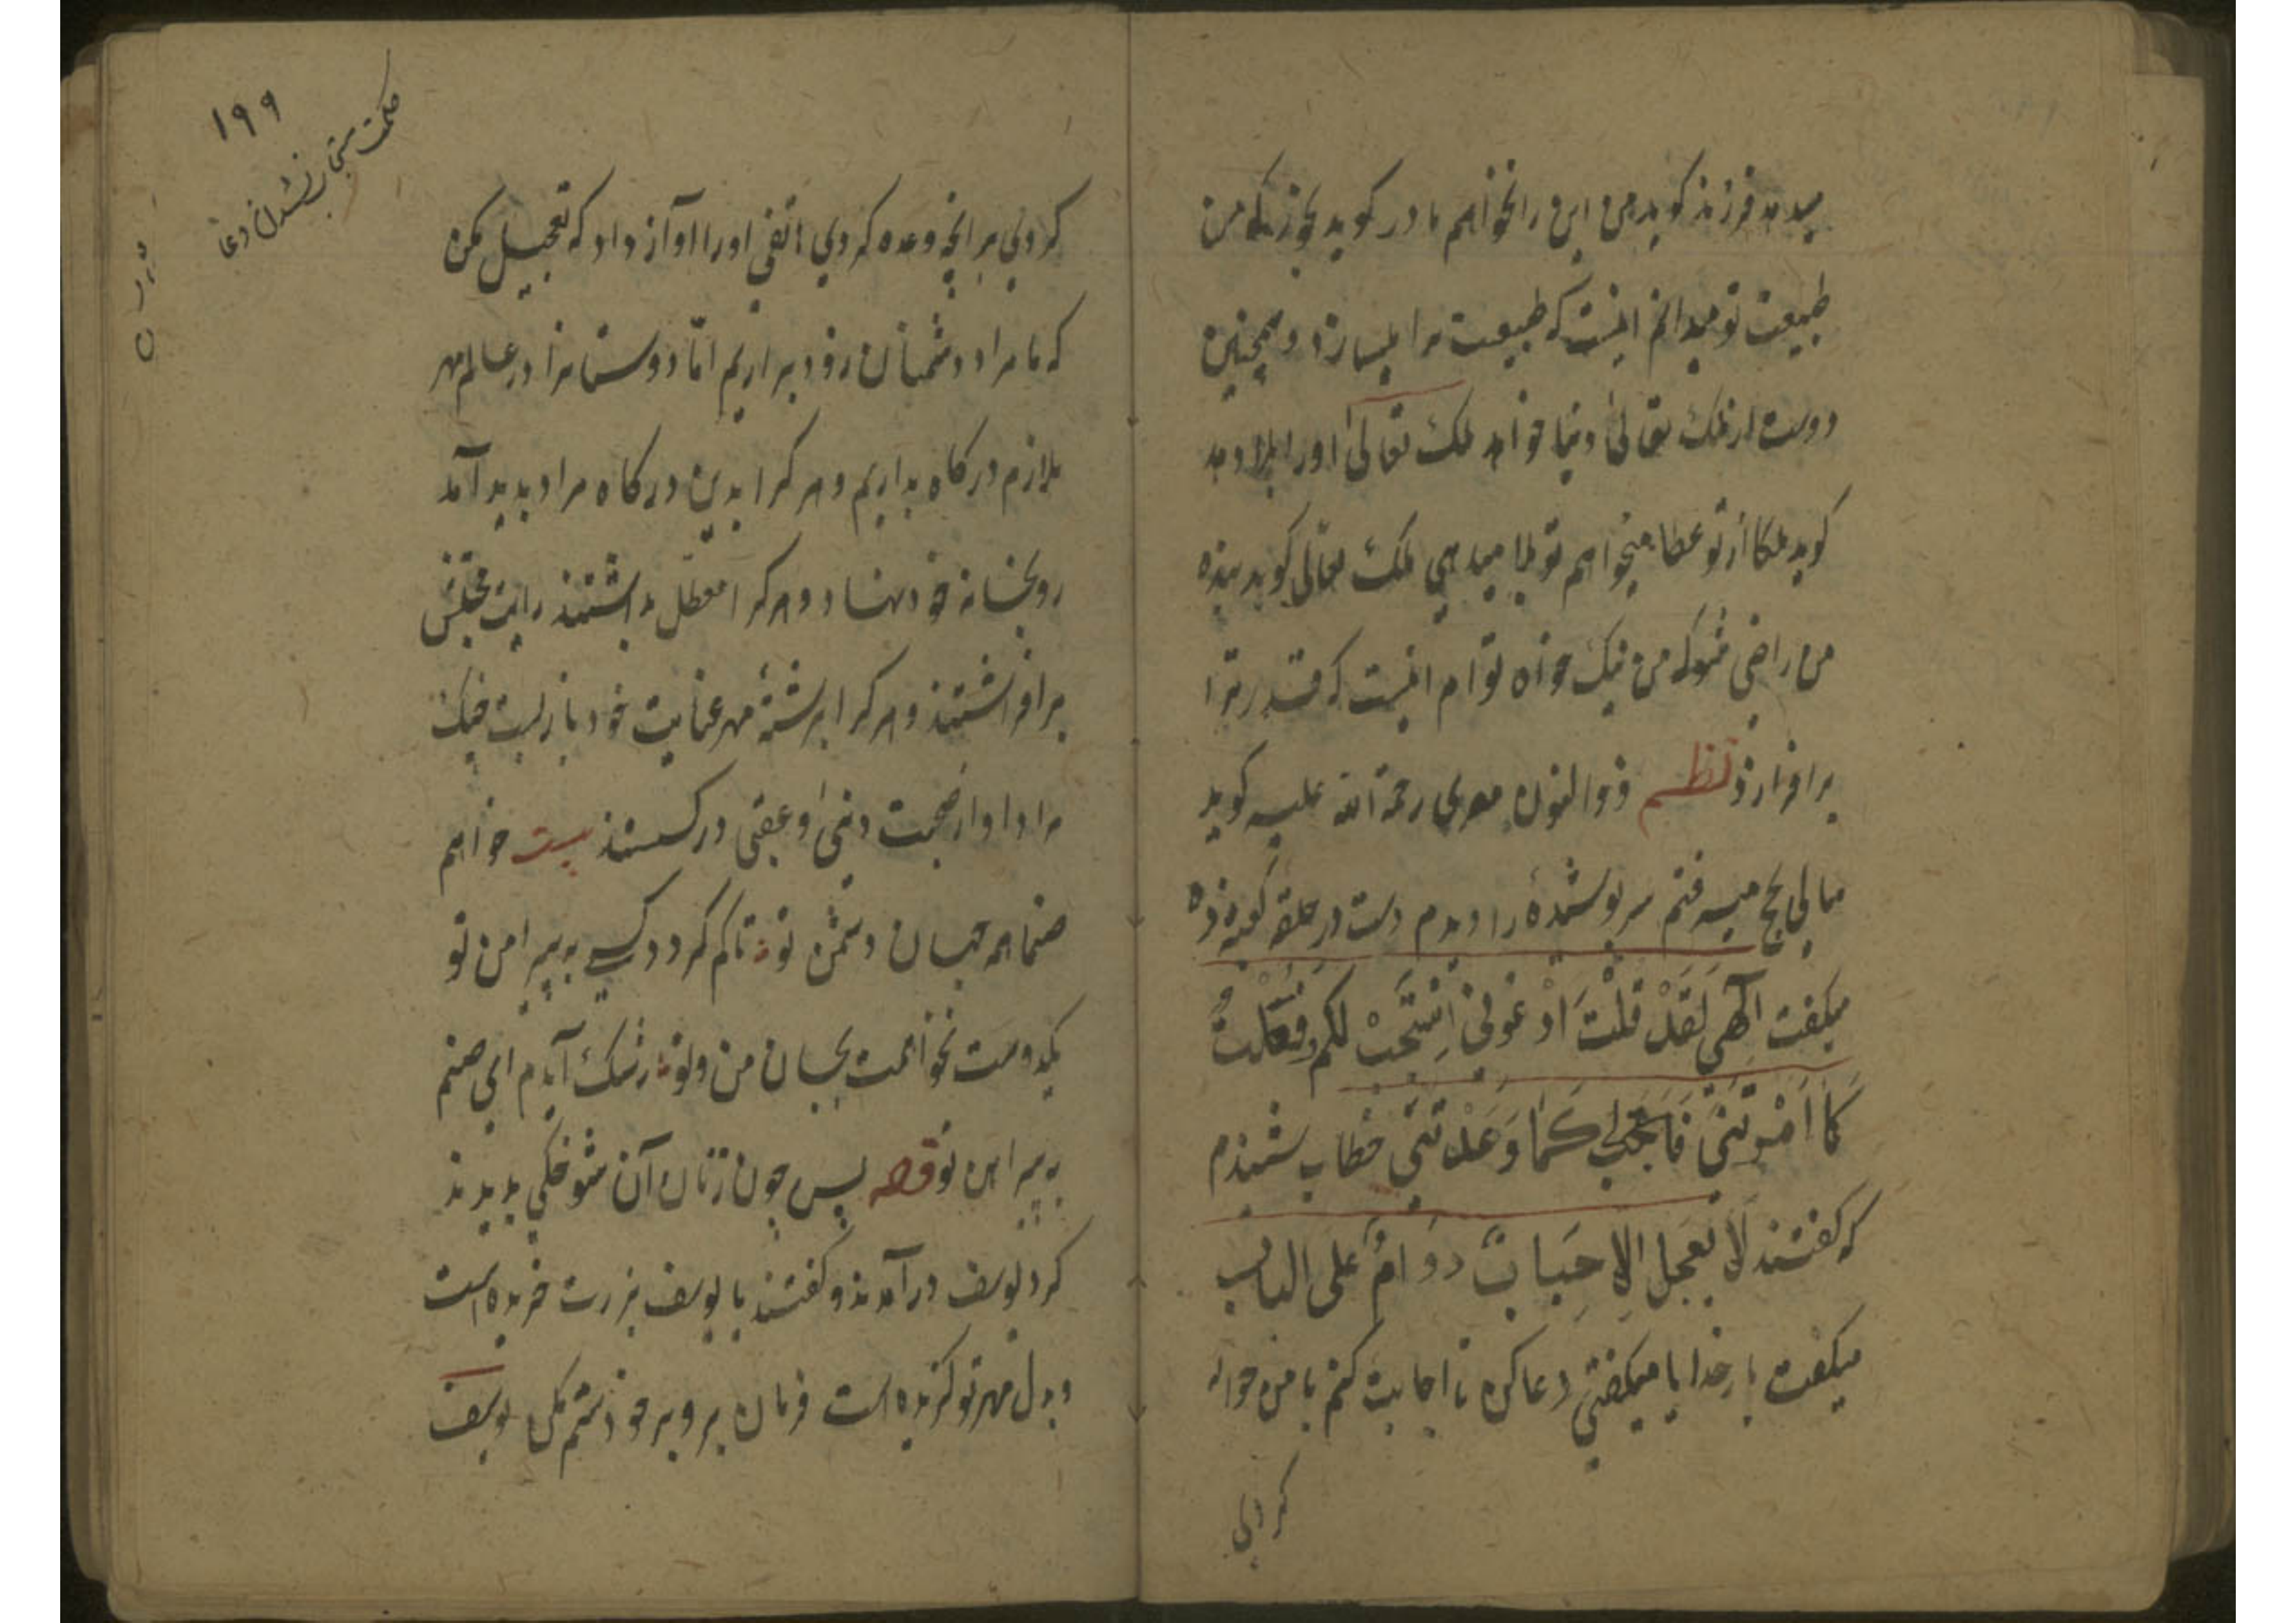 میدهد فرزند کوید من این را نخواهم مادر کوید بخور که من
طبیعت تو میدانم اینست که طبیعت ترا میسازد و همچنین
دوست از ملک تعالی دنیا خواهد ملک تعالی اورا بلا دهد
کوید ملکا از تو عطا میخواهم تو بلا میدهی ملک تعالی کوید بنده
من راضی شو که من نیک خواه توام اینست که قدر ترا
برافرازد نظم ذوالنون مصری رحمة الله علیه کوید
سالی بحج میرفتم سر پوشیدهٔ را دیدم دست در حلقه کعبه زده
میکفت الهی لقد قلت ادعونی استجب لکم فعلت
کما امرتنی فاستجب کما وعدتنی خطاب شنیدم
که کفتند لا تعجل الاحباب دوام علی الباب
میکفت بار خدایا میکفتی دعا کن تا اجابت کنم با من حواله
کردی
۱۹۹
حکمت مستجاب نشدن دعا
کردی هرانچه وعده کردی هاتفی اورا آواز داد که تعجیل مکن
که ما مراد دشمنان زود براریم امّا دوستانرا در عالم مهر
ملازم درکاه بداریم و هر کرا بدین درکاه مراد پدید آمد
روبخانه خود نهاد و هر کرا معطّل بداشتند رایت محبتش
برافراشتند و هر کرا برشتهٔ مهر عنایت خود بازبست
مراد او از صحبت دنیی و عقبی درکسستند بیت خواهم
صنما همه جهان دشمن تو تا کم کردد کسی به پیرامن تو
یکدوست نخواهمت بجهان من و تو رشک آیدم ای صنم
به پیراهن تو قصه پس چون زنان آن شوخکی بدیدند
کرد یوسف درآمدند و کفتند یا یوسف بزرت خریده است
و بدل مهر تو کزیده است فرمان بر و بر خود ستم مکن یوسف